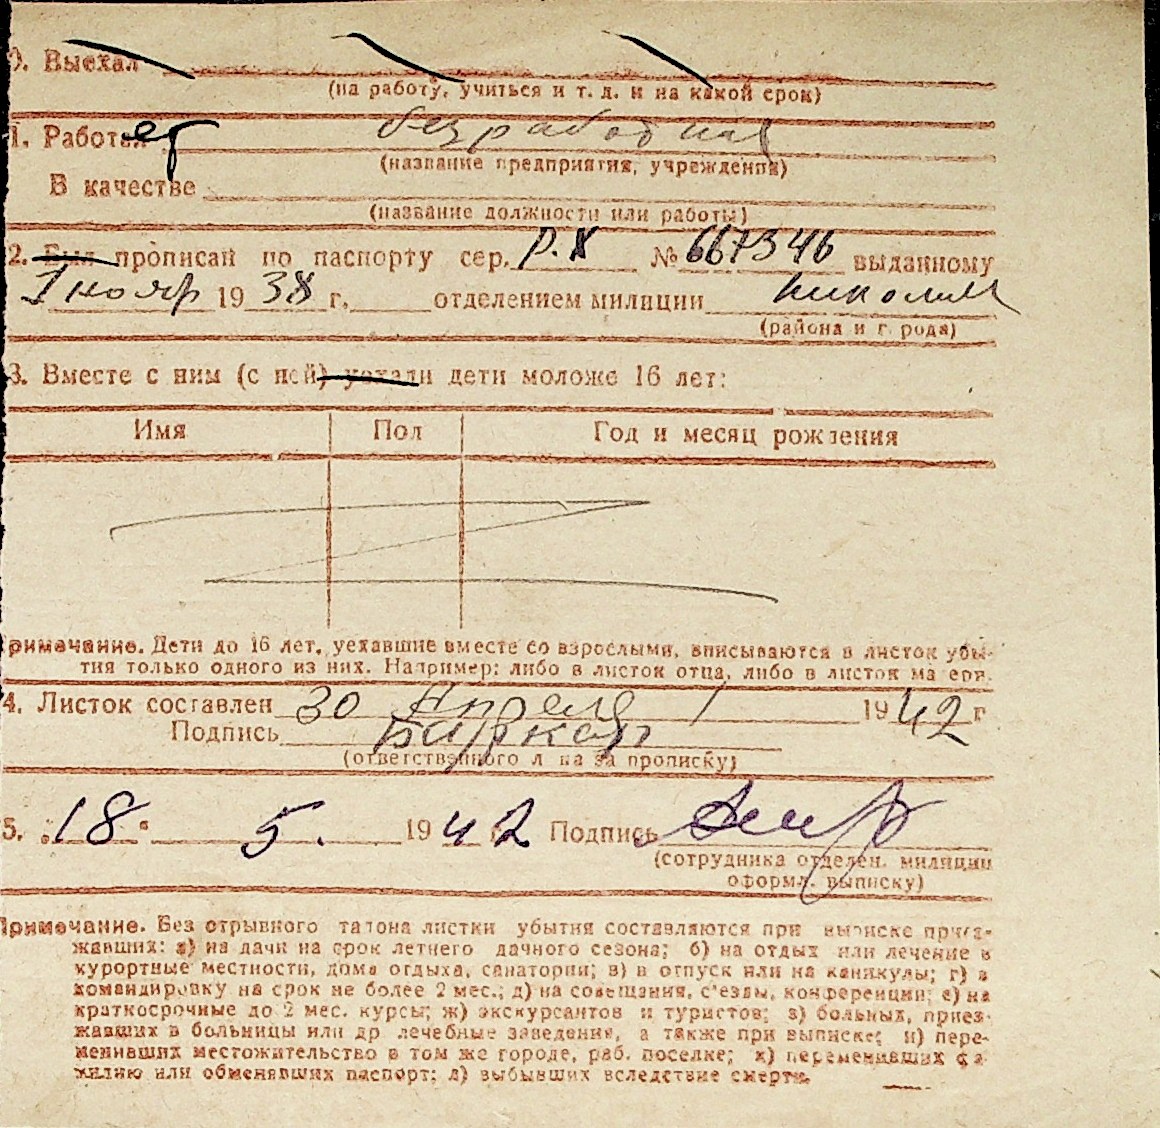 0. Выехал
(на работу, учиться и т. д. и на какой срок)
1. Работает безработная
(название предприятия, учреждения)
В качестве
(название должности или работы)
2. Был прописан по паспорту сер. Р.Х № 667346 выданному
1 нояр 1938 г. отделением милиции
(района и г рода)
3. Вместе с ним (с ней) уехали дети моложе 16 лет:
Имя Пол Год и месяц рождения
Примечание. Дети до 16 лет, уехавшие вместе со взрослыми, вписываются в листок убы-
тия только одного из них. Например: либо в листок отца, либо в листок ма ери.
4. Листок составлен 30 Апреля 1942 г
Подпись
(ответственного л на за прописку)
5. „18“ 5. 1942 Подпись
(сотрудника отделен. милиции
оформл. выписку)
Примечание. Без отрывного талона листки убытия составляются при выписке приез-
жавших: а) на дачи на срок летнего дачного сезона; б) на отдых или лечение в
курортные местности, дома отдыха, санатории; в) в отпуск или на каникулы; г) в
командировку на срок не более 2 мес.; д) на совещания, с'езды, конференции; е) на
краткосрочные до 2 мес. курсы; ж) экскурсантов и туристов; з) больных, приез-
жавших в больницы или др лечебные заведения, а также при выписке; и) пере-
менивших местожительство в том же городе, раб. поселке; к) переменивших фа-
милию или обменявших паспорт; л) выбывших вследствие смерти.